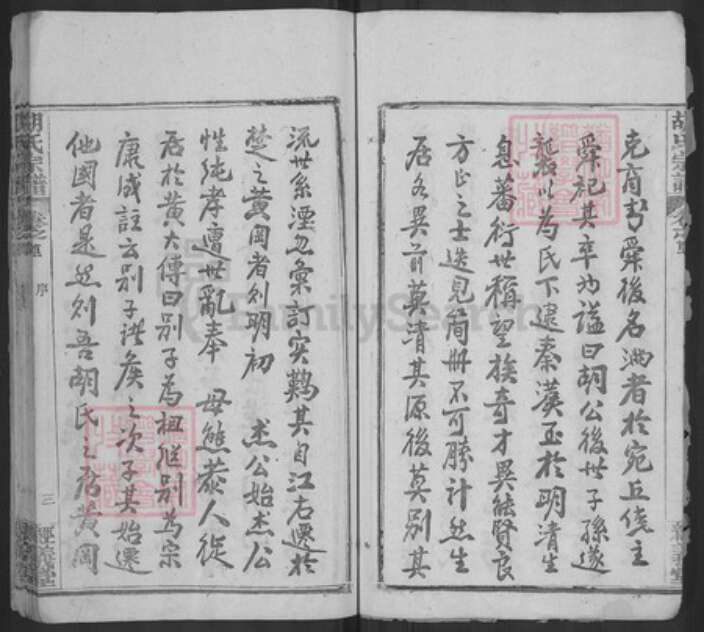 克商封舜後名滿者於宛丘俾主
舜祀其卒為謚曰胡公後世子孫遂
襲以為氏下逮秦漢至於明清生
息蕃衍世稱望族奇才異能賢良
方正之士迭見簡冊不可勝計然生
居各異前莫清其源後莫別其
流世系湮忽彙訂實難其自江右遷於
楚之黃岡者則明初 杰公始杰公
性純孝遭世亂奉 母熊恭人從
居於黃大傳曰別子為祖繼別為宗
康成註云別子諸侯之次子其始遷
他國者是然則吾胡氏之居黃岡
胡氏宗譜
序
三
經義堂
FamilySearch